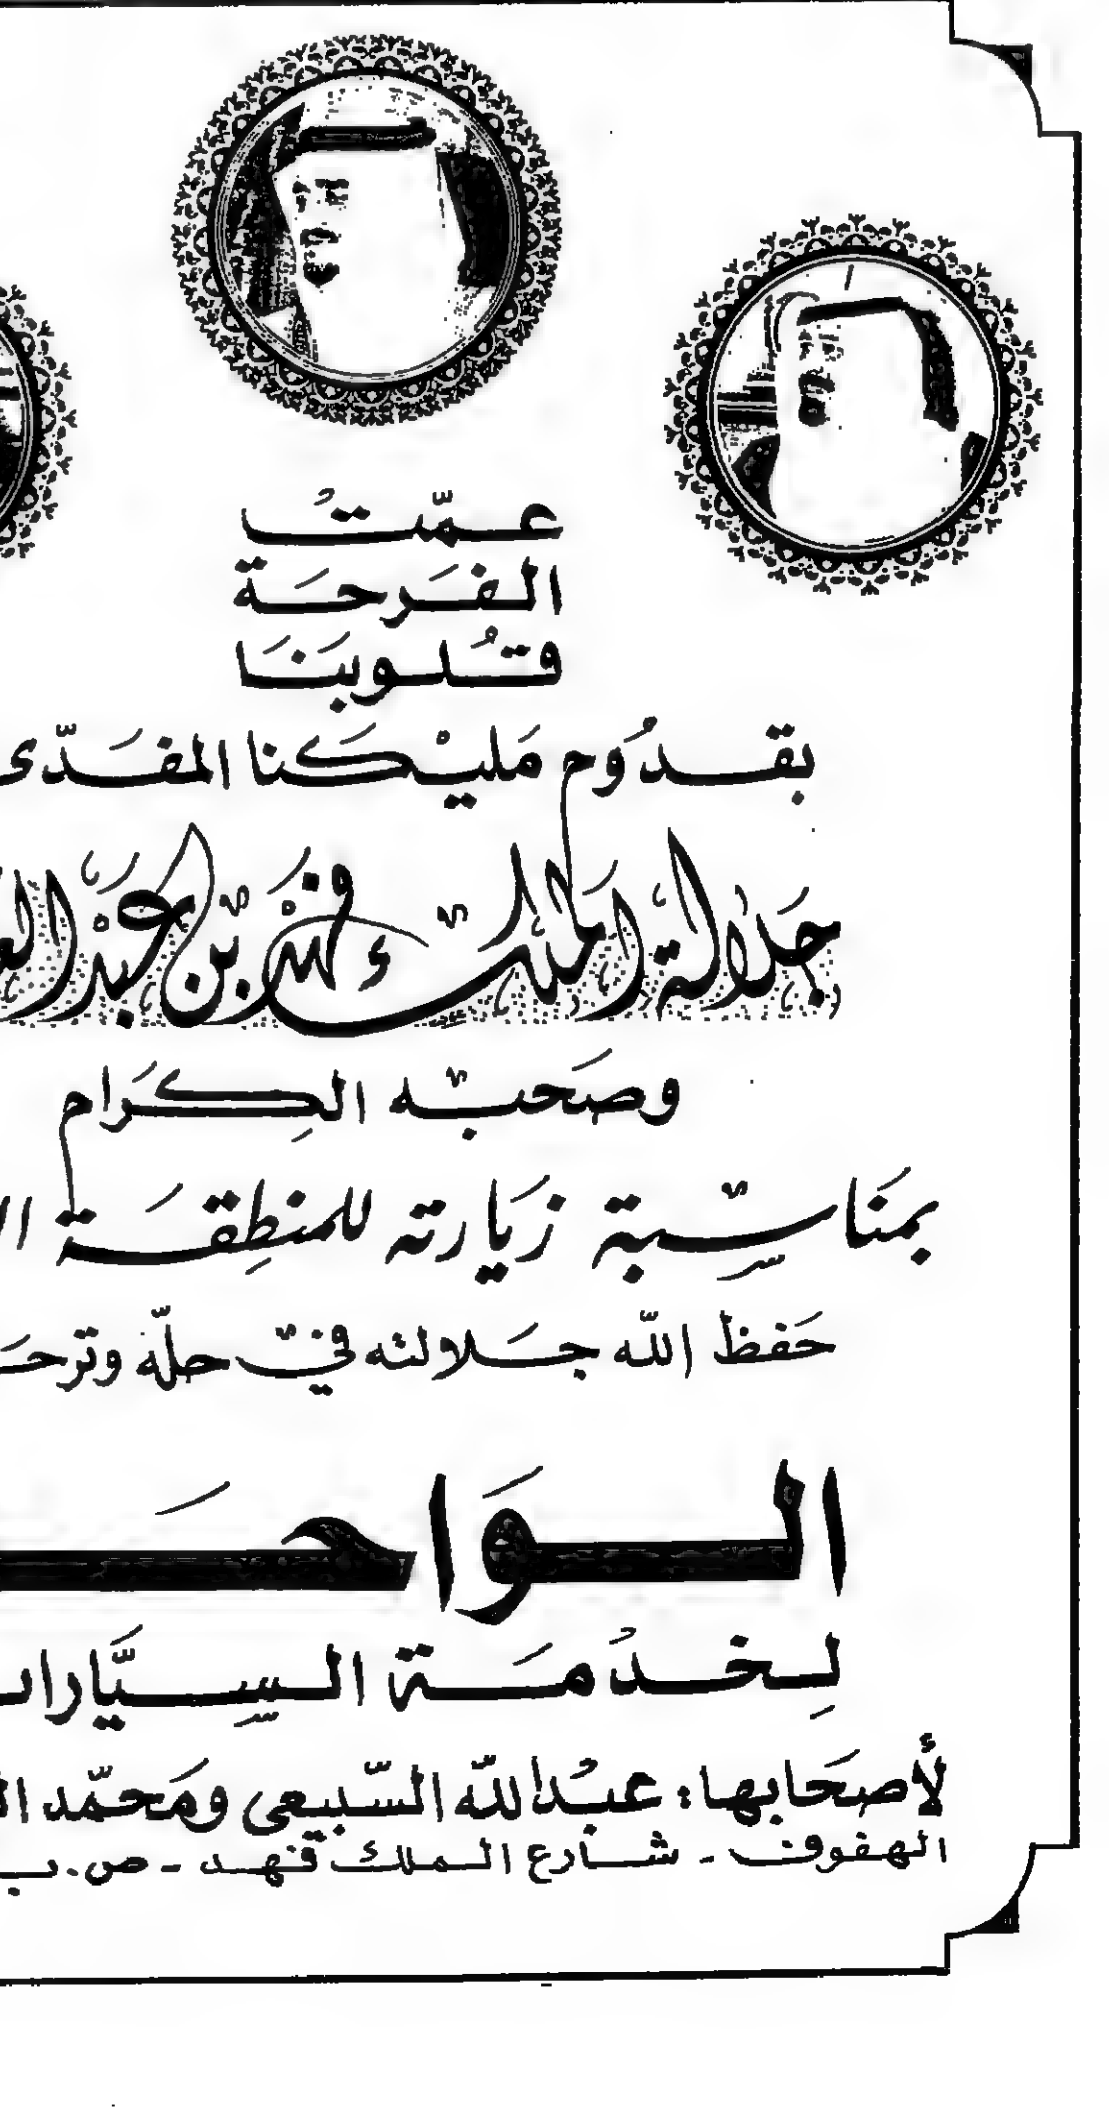 عمّتُ
الفَرحَة
قُلوبَنَا
بقدُوم مَليْكَنا المفَدّى
جَلالة الملك فهد بن عَبْد
وصَحبه الكِرَام
بمنَاسِبة زيَارته للمنطِقَة
حَفظ اللّه جَلالته في حلّه
الوَاحَـ
لِخدْمَة السِيَّارات
لأصحَابها: عبْداللّه السّبيعي ومَحمّد
الهفوف - شارع الملك فهد - ص.ب